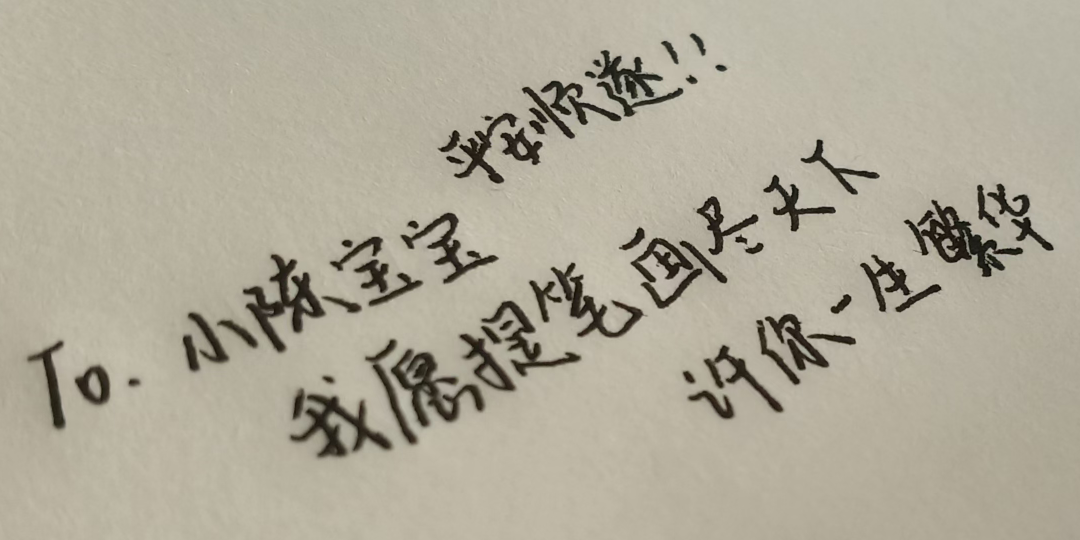 平安顺遂!!
To. 小陈宝宝
我愿提笔画尽天下
许你一生繁华